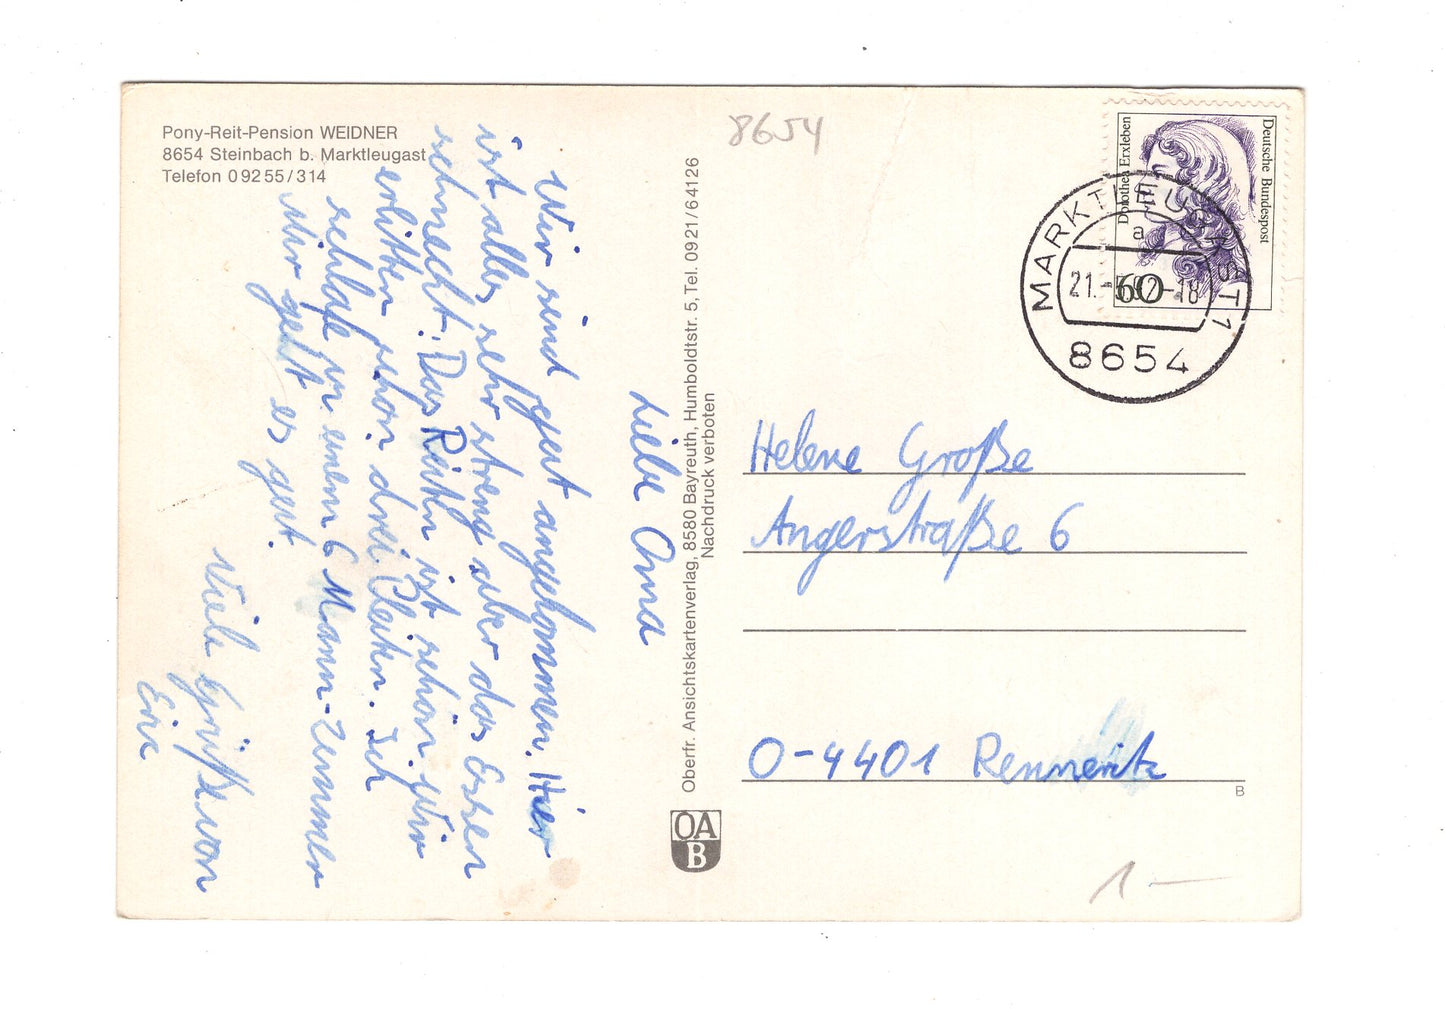 Pony-Reit-Pension WEIDNER
8654 Steinbach b. Marktleugast
Telefon 0 92 55 / 314
Liebe Oma
Wir sind gut angekommen. Hier
ist alles sehr streng aber das Essen
schmeckt. Das Reiten ist schön. Wir
erlitten schon drei. Ich
schlafe in einem 6 Mann-Zimmer
Mir geht es gut.
Viele Grüße von
Oberfr. Ansichtskartenverlag, 8580 Bayreuth, Humboldtstr. 5, Tel. 09 21 / 6 41 26
Nachdruck verboten
OA
B
8654
Dorothea Erxleben
Deutsche Bundespost
60
MARKTLEUGAST 1
a
21.-5.92-18
8654
Helene Große
Angerstraße 6
O-4401 Renneritz
B
1 —